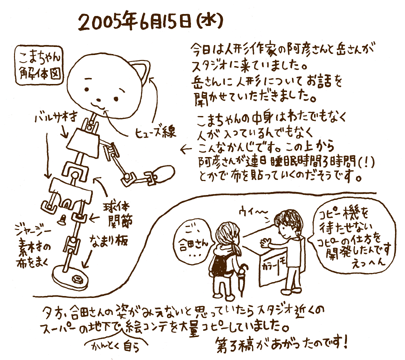 2005年6月15日(水)
こまちゃん
解体図
今日は人形作家の阿彦さんと岳さんが
スタジオに来ていました。
岳さんに人形についてお話を
聞かせていただきました。
こまちゃんの中身はわたでもなく
人が入っているんでもなく
こんなかんじです。この上から
阿彦さんが連日睡眠時間3時間(!)
とかで布を貼っていくのだそうです。
バルサ材
ヒューズ線
球体
関節
ジャージー
素材の
布をまく
なまり板
ウィ〜
合田さん…
カラーコピー
コピー機を
待たせない
コピーの仕方を
開発したんです
えっへん
夕方、合田さんの姿がみえないと思っていたらスタジオ近くの
スーパーの地下で、絵コンテを大量コピーしていました。
かんとく自ら
第3稿があがったのです!